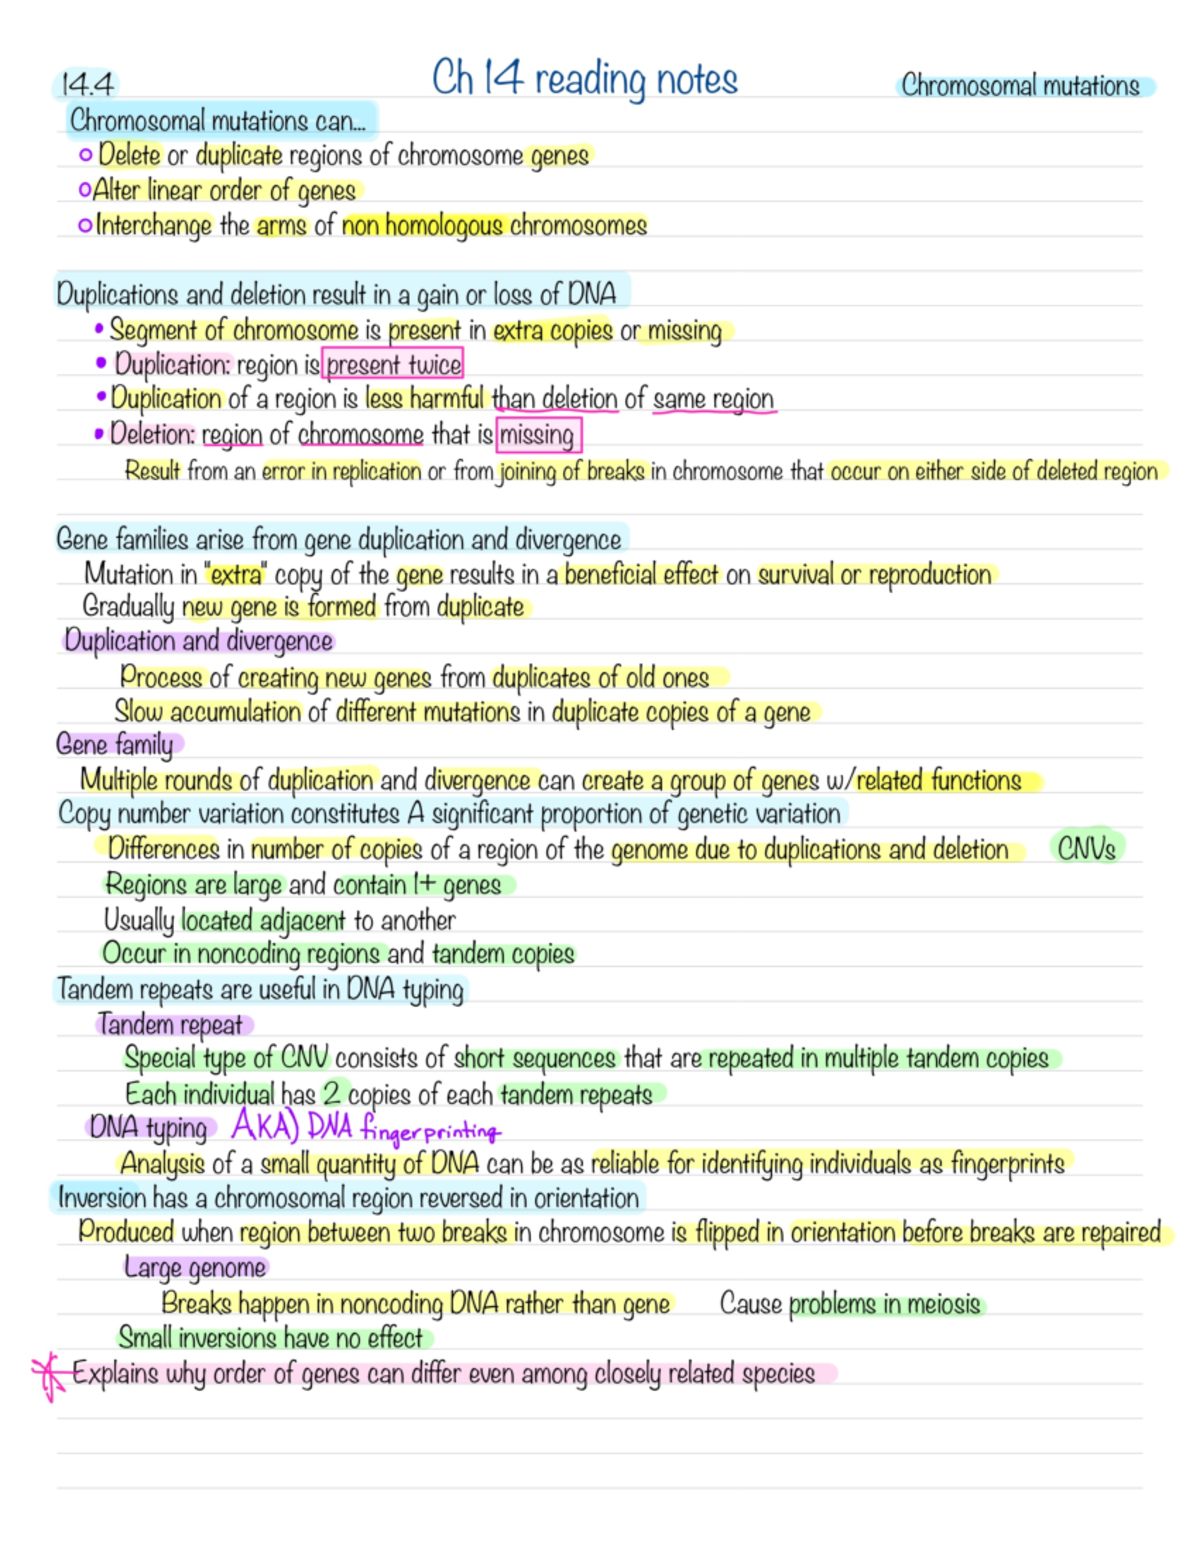 14.4 Ch 14 reading notes Chromosomal mutations
Chromosomal mutations can...
Delete or duplicate regions of chromosome genes
Alter linear order of genes
Interchange the arms of non homologous chromosomes
Duplications and deletion result in a gain or loss of DNA
• Segment of chromosome is present in extra copies or missing
• Duplication: region is present twice
• Duplication of a region is less harmful than deletion of same region
• Deletion: region of chromosome that is missing
Result from an error in replication or from joining of breaks in chromosome that occur on either side of deleted region
Gene families arise from gene duplication and divergence
Mutation in "extra" copy of the gene results in a beneficial effect on survival or reproduction
Gradually new gene is formed from duplicate
Duplication and divergence
Process of creating new genes from duplicates of old ones
Slow accumulation of different mutations in duplicate copies of a gene
Gene family
Multiple rounds of duplication and divergence can create a group of genes w/related functions
Copy number variation constitutes A significant proportion of genetic variation
Differences in number of copies of a region of the genome due to duplications and deletion CNVs
Regions are large and contain 1+ genes
Usually located adjacent to another
Occur in noncoding regions and tandem copies
Tandem repeats are useful in DNA typing
Tandem repeat
Special type of CNV consists of short sequences that are repeated in multiple tandem copies
Each individual has 2 copies of each tandem repeats
DNA typing AKA) DNA fingerprinting
Analysis of a small quantity of DNA can be as reliable for identifying individuals as fingerprints
Inversion has a chromosomal region reversed in orientation
Produced when region between two breaks in chromosome is flipped in orientation before breaks are repaired
Large genome
Breaks happen in noncoding DNA rather than gene Cause problems in meiosis
Small inversions have no effect
Explains why order of genes can differ even among closely related species